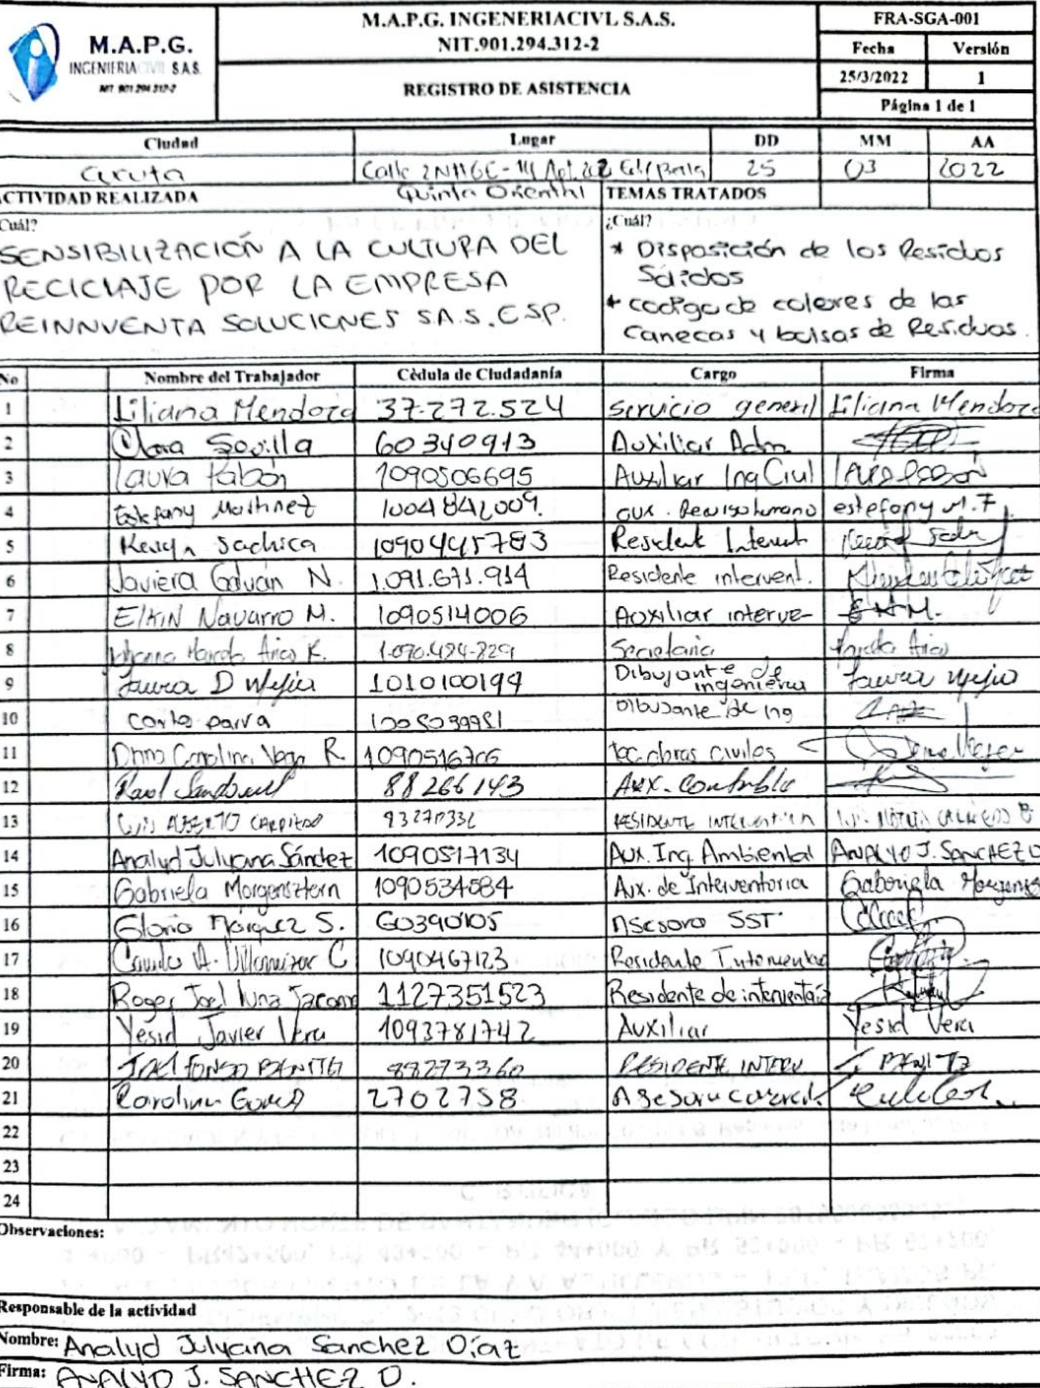 M.A.P.G.
INGENIERIA CIVIL S.A.S.
NIT 901.294.312-2
M.A.P.G. INGENERIACIVL S.A.S.
NIT.901.294.312-2
REGISTRO DE ASISTENCIA
FRA-SGA-001
Fecha Versión
25/3/2022 1
Página 1 de 1
Ciudad Lugar DD MM AA
Calle 25 03 2022
Quinta Oriental
ACTIVIDAD REALIZADA TEMAS TRATADOS
Cuál? ¿Cuál?
SENSIBILIZACIÓN A LA CULTURA DEL
RECICLAJE POR LA EMPRESA
REINNVENTA SOLUCIONES S.A.S. ESP.
* Disposición de los Residuos
Solidos
* codigo de colores de las
canecas y bolsas de Residuos.
No Nombre del Trabajador Cèdula de Ciudadanía Cargo Firma
1 Liliana Mendoza 37.272.524 servicio general Liliana Mendoza
2 Sevilla 60340913 Auxiliar Adm.
3 Laura Pabón 1090506695 Auxiliar Ing Civil
4 Estefany Martinez 1004842009. aux. estefany M. F.
5 Sachica 1090445783 Residente
6 Javiera Galván N. 1.091.671.914 Residente intervent.
7 Elkin Navarro M. 1090514006 Auxiliar interve- E.N.M.
8 Arias K. Secretaria Arias
9 Laura D Mejia 1010100194 Dibujante de ingenieria Laura Mejia
10 parra 1005039981 Dibujante de ing
11 Carolina Vega R. obras civiles
12 Raul Sandoval 88266143 Aux. Contable
13 ALBERTO RESIDENTE
14 Analyd Julyana Sánchez 1090517134 Aux. Ing Ambiental ANALYD J. SANCHEZ D
15 Gabriela Morgensztern 1090534584 Aux. de Interventoria Gabriela
16 Márquez S. 60390105 Asesora SST
17 A. Villamizar C 1090467123 Residente
18 Roger Joel Luna 1127351523 Residente de interventoria
19 Yesid Javier Vera 1093781742 Auxiliar Yesid Vera
20 88273360 RESIDENTE INTERV
21 Karolina 2702758
22
23
24
Observaciones:
Responsable de la actividad
Nombre: Analyd Julyana Sanchez Díaz
Firma: ANALYD J. SANCHEZ D.